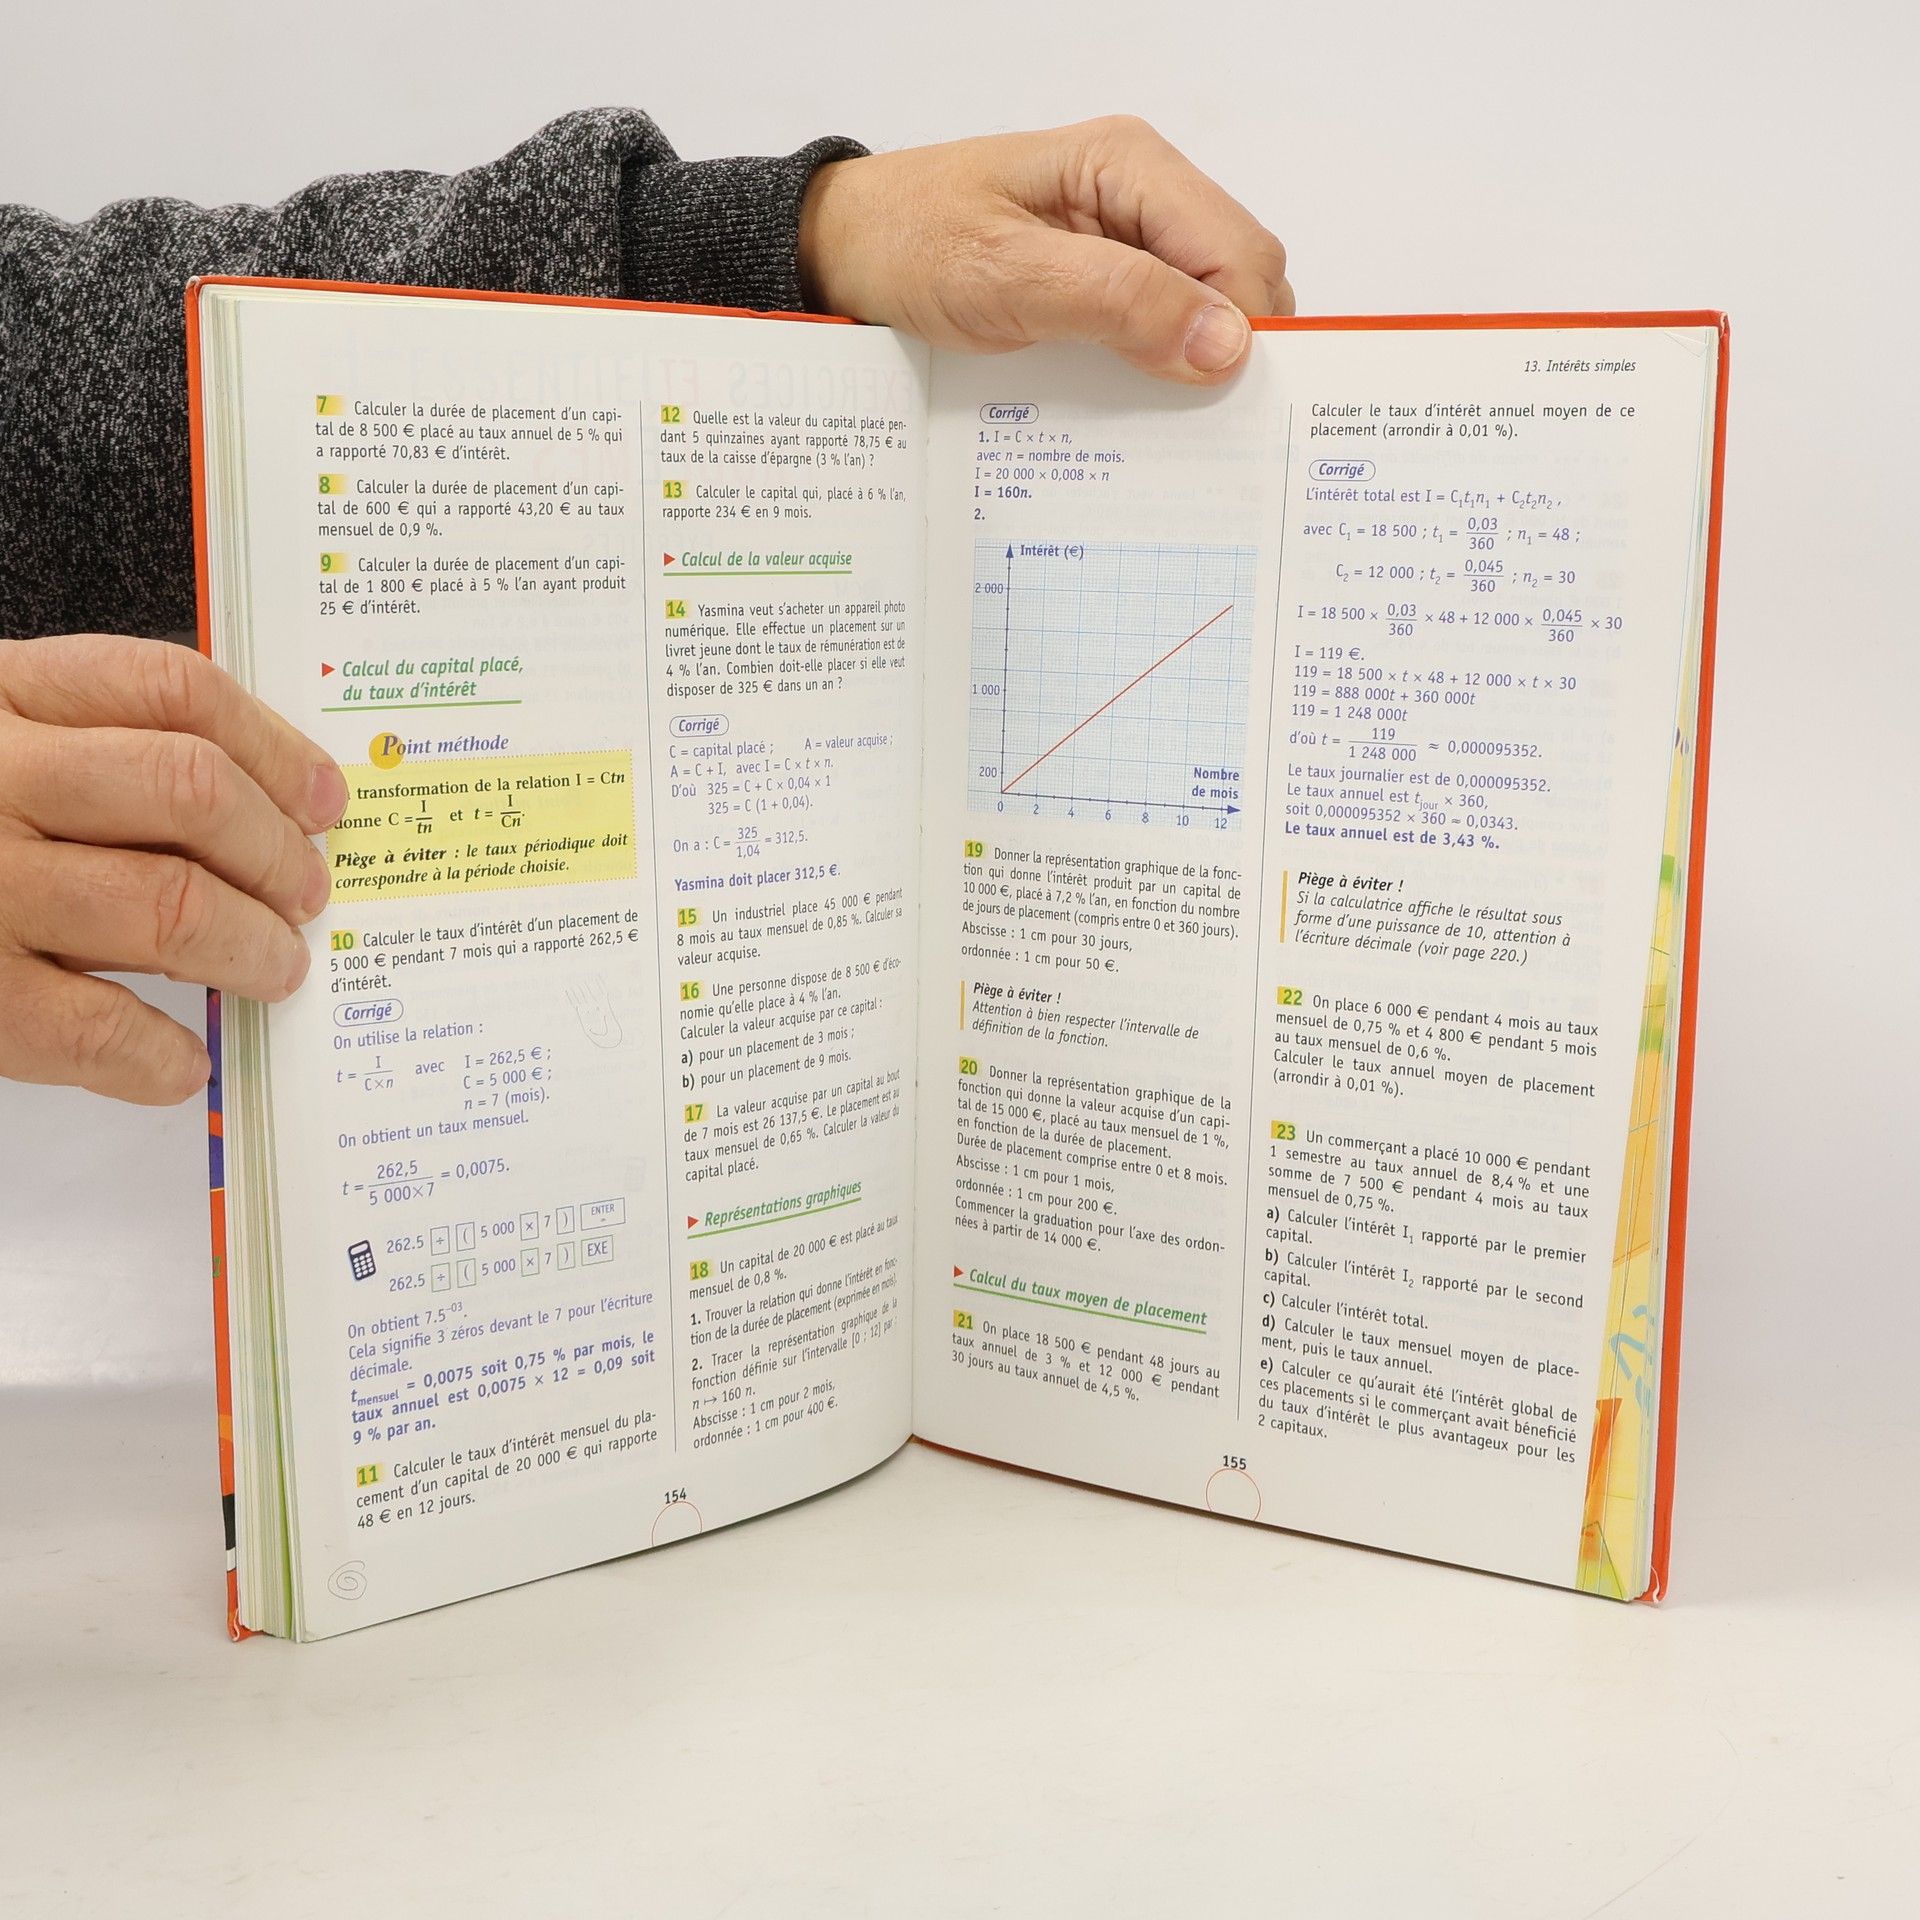 7 Calculer la durée de placement d'un capi-
tal de 8 500 € placé au taux annuel de 5 % qui
a rapporté 70,83 € d'intérêt.
8 Calculer la durée de placement d'un capi-
tal de 600 € qui a rapporté 43,20 € au taux
mensuel de 0,9 %.
9 Calculer la durée de placement d'un capi-
tal de 1 800 € placé à 5 % l'an ayant produit
25 € d'intérêt.
Calcul du capital placé,
du taux d'intérêt
Point méthode
transformation de la relation I = Ctn
donne C = I/tn et t = I/Cn.
Piège à éviter : le taux périodique doit
correspondre à la période choisie.
10 Calculer le taux d'intérêt d'un placement de
5 000 € pendant 7 mois qui a rapporté 262,5 €
d'intérêt.
Corrigé
On utilise la relation :
t = I/C×n avec I = 262,5 € ;
C = 5 000 € ;
n = 7 (mois).
On obtient un taux mensuel.
t = 262,5/5 000×7 = 0,0075.
262.5 ÷ ( 5 000 × 7 ) ENTER =
262.5 ÷ ( 5 000 × 7 ) EXE
On obtient 7.5⁻⁰³.
Cela signifie 3 zéros devant le 7 pour l'écriture
décimale.
tmensuel = 0,0075 soit 0,75 % par mois, le
taux annuel est 0,0075 × 12 = 0,09 soit
9 % par an.
11 Calculer le taux d'intérêt mensuel du pla-
cement d'un capital de 20 000 € qui rapporte
48 € en 12 jours.
12 Quelle est la valeur du capital placé pen-
dant 5 quinzaines ayant rapporté 78,75 € au
taux de la caisse d'épargne (3 % l'an) ?
13 Calculer le capital qui, placé à 6 % l'an,
rapporte 234 € en 9 mois.
Calcul de la valeur acquise
14 Yasmina veut s'acheter un appareil photo
numérique. Elle effectue un placement sur un
livret jeune dont le taux de rémunération est de
4 % l'an. Combien doit-elle placer si elle veut
disposer de 325 € dans un an ?
Corrigé
C = capital placé ; A = valeur acquise ;
A = C + I, avec I = C × t × n.
D'où 325 = C + C × 0,04 × 1
325 = C (1 + 0,04).
On a : C = 325/1,04 = 312,5.
Yasmina doit placer 312,5 €.
15 Un industriel place 45 000 € pendant
8 mois au taux mensuel de 0,85 %. Calculer sa
valeur acquise.
16 Une personne dispose de 8 500 € d'éco-
nomie qu'elle place à 4 % l'an.
Calculer la valeur acquise par ce capital :
a) pour un placement de 3 mois ;
b) pour un placement de 9 mois.
17 La valeur acquise par un capital au bout
de 7 mois est 26 137,5 €. Le placement est au
taux mensuel de 0,65 %. Calculer la valeur du
capital placé.
Représentations graphiques
18 Un capital de 20 000 € est placé au taux
mensuel de 0,8 %.
1. Trouver la relation qui donne l'intérêt en fonc-
tion de la durée de placement (exprimée en mois).
2. Tracer la représentation graphique de la
fonction définie sur l'intervalle [0 ; 12] par :
n ↦ 160 n.
Abscisse : 1 cm pour 2 mois,
ordonnée : 1 cm pour 400 €.
154
13. Intérêts simples
Corrigé
1. I = C × t × n,
avec n = nombre de mois.
I = 20 000 × 0,008 × n
I = 160n.
2.
Intérêt (€)
2 000
1 000
200
Nombre
de mois
0 2 4 6 8 10 12
19 Donner la représentation graphique de la fonc-
tion qui donne l'intérêt produit par un capital de
10 000 €, placé à 7,2 % l'an, en fonction du nombre
de jours de placement (compris entre 0 et 360 jours).
Abscisse : 1 cm pour 30 jours,
ordonnée : 1 cm pour 50 €.
Piège à éviter !
Attention à bien respecter l'intervalle de
définition de la fonction.
20 Donner la représentation graphique de la
fonction qui donne la valeur acquise d'un capi-
tal de 15 000 €, placé au taux mensuel de 1 %,
en fonction de la durée de placement.
Durée de placement comprise entre 0 et 8 mois.
Abscisse : 1 cm pour 1 mois,
ordonnée : 1 cm pour 200 €.
Commencer la graduation pour l'axe des ordon-
nées à partir de 14 000 €.
Calcul du taux moyen de placement
21 On place 18 500 € pendant 48 jours au
taux annuel de 3 % et 12 000 € pendant
30 jours au taux annuel de 4,5 %.
Calculer le taux d'intérêt annuel moyen de ce
placement (arrondir à 0,01 %).
Corrigé
L'intérêt total est I = C₁t₁n₁ + C₂t₂n₂ ,
avec C₁ = 18 500 ; t₁ = 0,03/360 ; n₁ = 48 ;
C₂ = 12 000 ; t₂ = 0,045/360 ; n₂ = 30
I = 18 500 × 0,03/360 × 48 + 12 000 × 0,045/360 × 30
I = 119 €.
119 = 18 500 × t × 48 + 12 000 × t × 30
119 = 888 000t + 360 000t
119 = 1 248 000t
d'où t = 119/1 248 000 ≈ 0,000095352.
Le taux journalier est de 0,000095352.
Le taux annuel est tjour × 360,
soit 0,000095352 × 360 ≈ 0,0343.
Le taux annuel est de 3,43 %.
Piège à éviter !
Si la calculatrice affiche le résultat sous
forme d'une puissance de 10, attention à
l'écriture décimale (voir page 220.)
22 On place 6 000 € pendant 4 mois au taux
mensuel de 0,75 % et 4 800 € pendant 5 mois
au taux mensuel de 0,6 %.
Calculer le taux annuel moyen de placement
(arrondir à 0,01 %).
23 Un commerçant a placé 10 000 € pendant
1 semestre au taux annuel de 8,4 % et une
somme de 7 500 € pendant 4 mois au taux
mensuel de 0,75 %.
a) Calculer l'intérêt I₁ rapporté par le premier
capital.
b) Calculer l'intérêt I₂ rapporté par le second
capital.
c) Calculer l'intérêt total.
d) Calculer le taux mensuel moyen de place-
ment, puis le taux annuel.
e) Calculer ce qu'aurait été l'intérêt global de
ces placements si le commerçant avait bénéficié
du taux d'intérêt le plus avantageux pour les
2 capitaux.
155